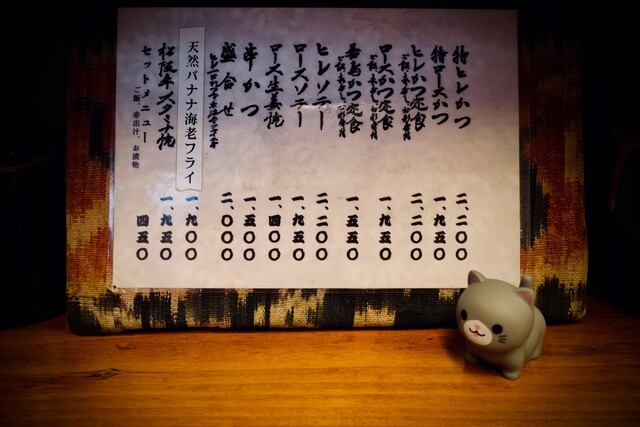 特ヒレかつ 二、二〇〇
特ロースかつ 一、九五〇
ヒレかつ定食 二、二〇〇
ロースかつ定食 一、九五〇
かつ定食 一、五五〇
ヒレソテー 二、二〇〇
ロースソテー 一、九五〇
ロース生姜焼 一、四〇〇
串かつ 一、五〇〇
盛合せ 二、〇〇〇
天然バナナ海老フライ 一、九〇〇
松阪牛スタミナ焼 一、九五〇
セットメニュー 四五〇
ご飯、赤出汁、お漬物